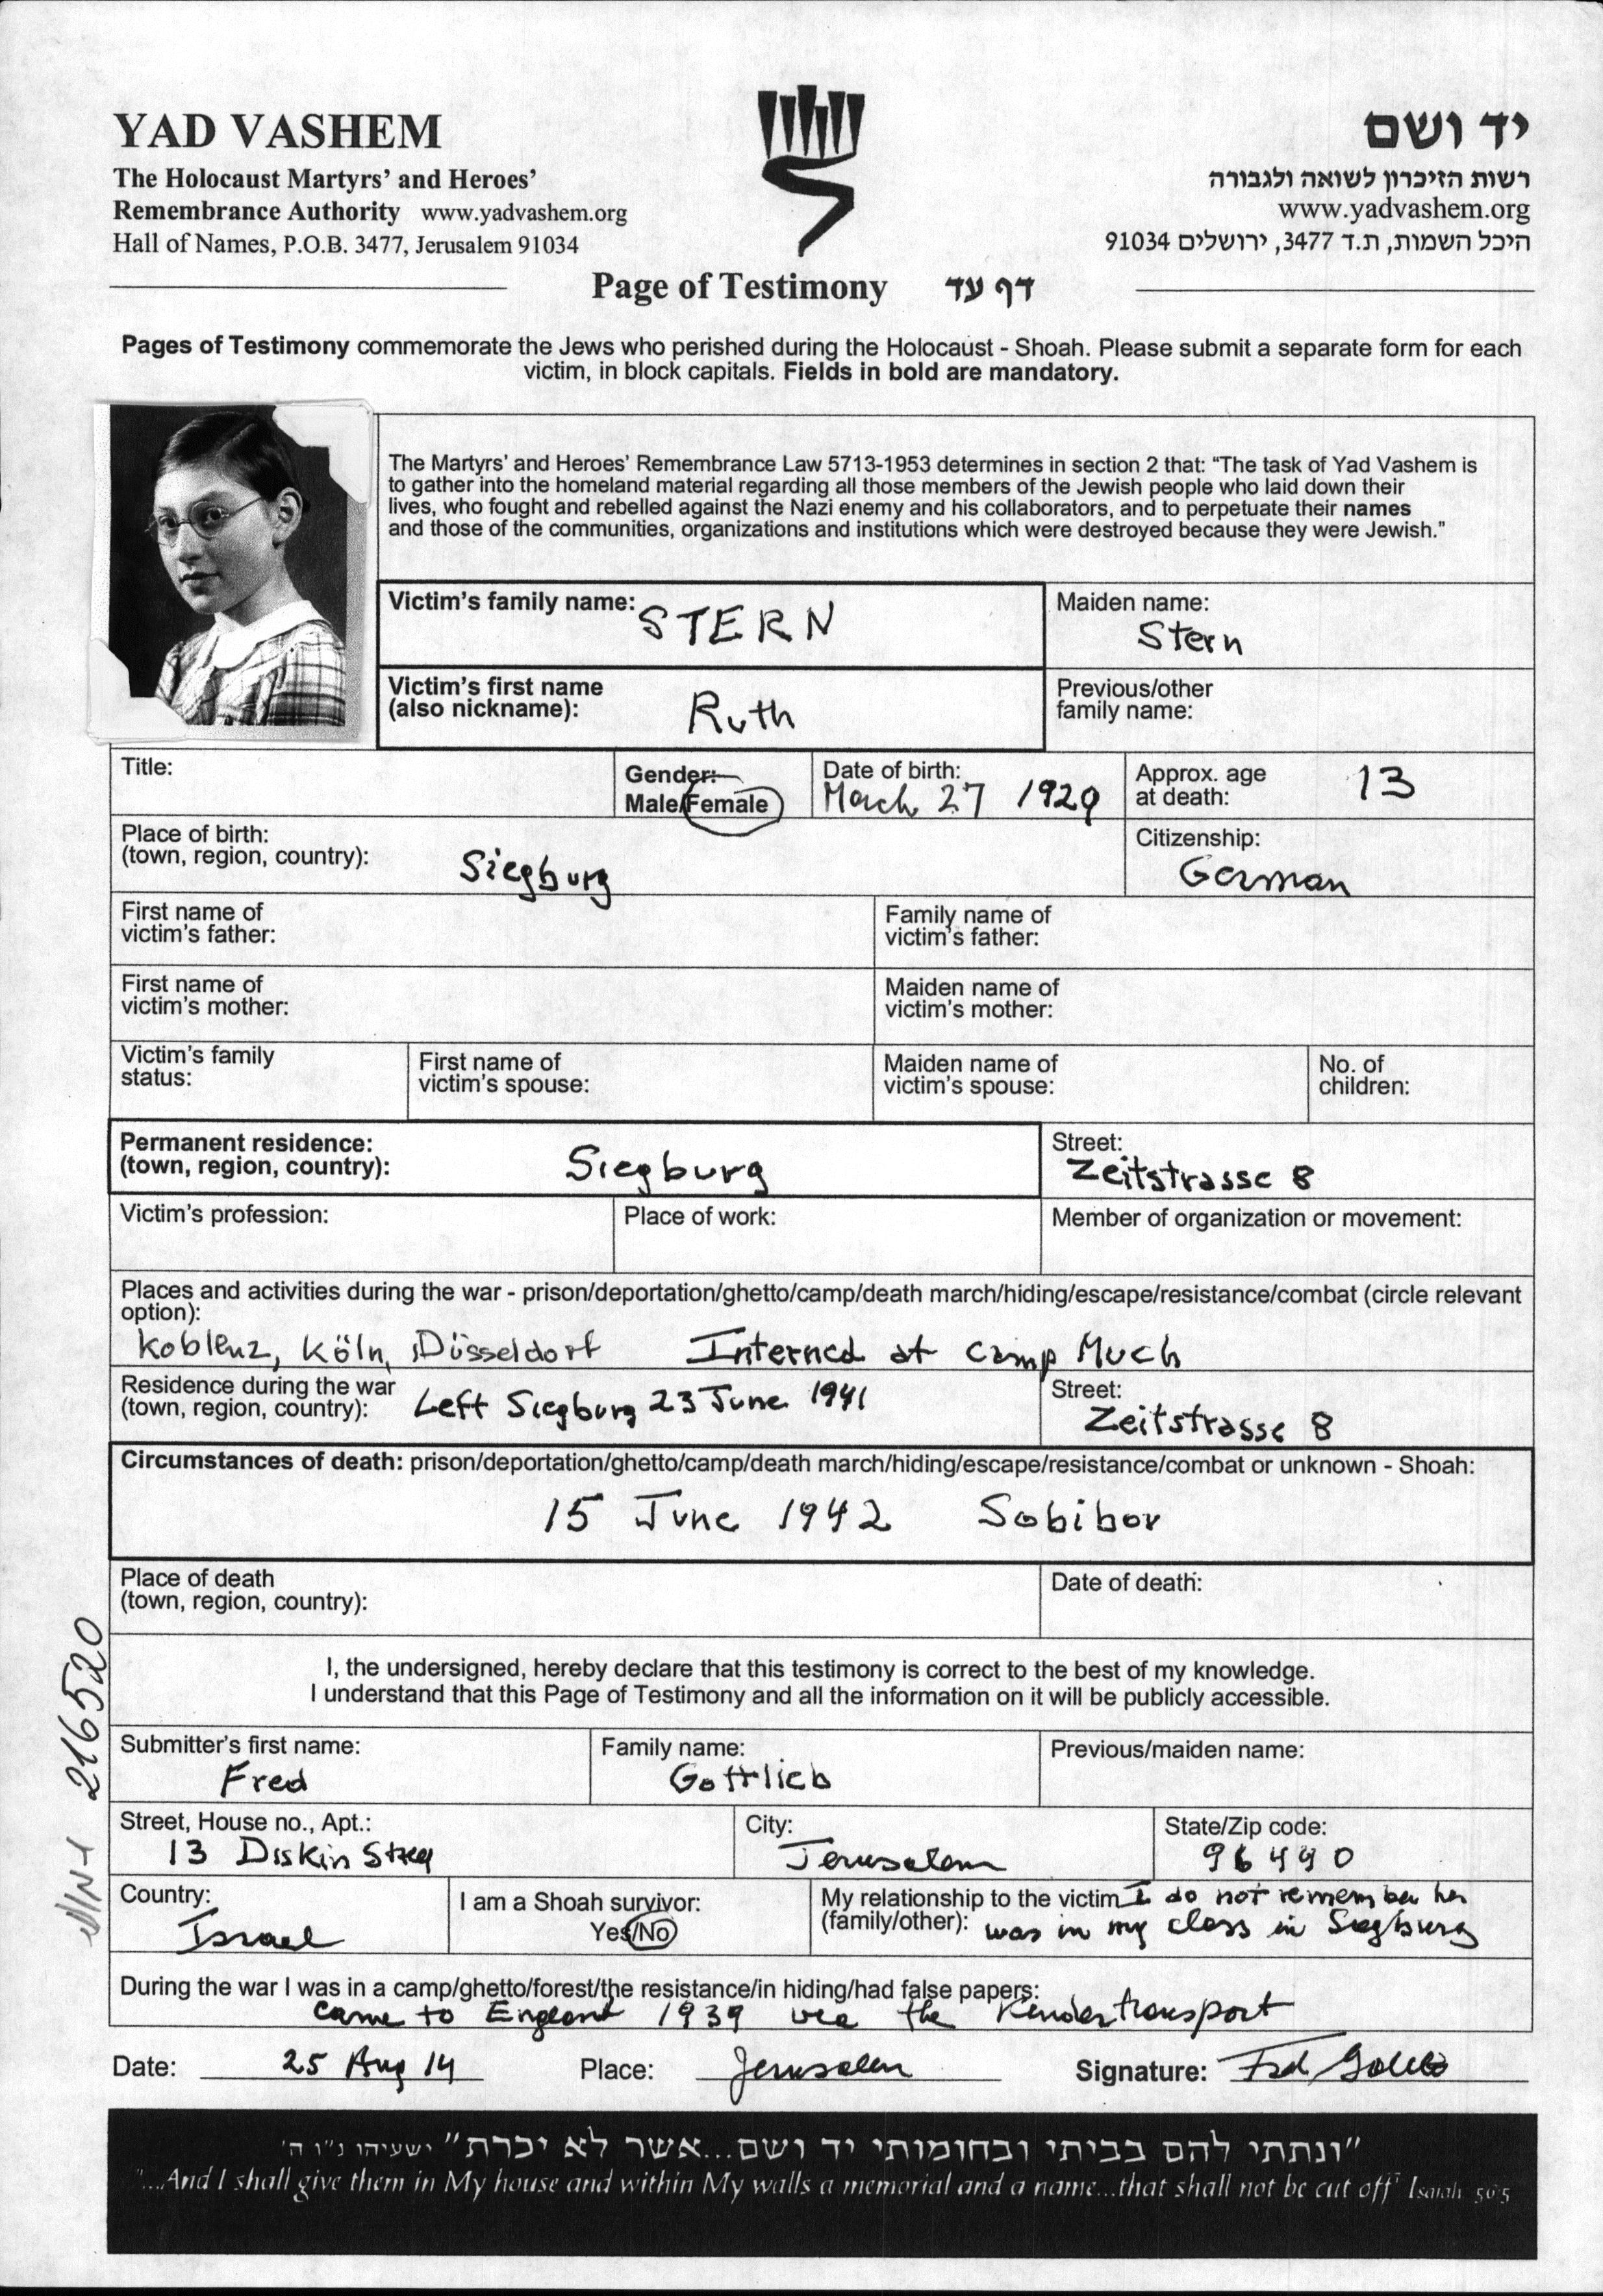 YAD VASHEM
The Holocaust Martyrs' and Heroes'
Remembrance Authority www.yadvashem.org
Hall of Names, P.O.B. 3477, Jerusalem 91034
יד ושם
רשות הזיכרון לשואה ולגבורה
www.yadvashem.org
היכל השמות, ת.ד 3477, ירושלים 91034
Page of Testimony דף עד
Pages of Testimony commemorate the Jews who perished during the Holocaust - Shoah. Please submit a separate form for each
victim, in block capitals. Fields in bold are mandatory.
The Martyrs' and Heroes' Remembrance Law 5713-1953 determines in section 2 that: "The task of Yad Vashem is
to gather into the homeland material regarding all those members of the Jewish people who laid down their
lives, who fought and rebelled against the Nazi enemy and his collaborators, and to perpetuate their names
and those of the communities, organizations and institutions which were destroyed because they were Jewish."
Victim's family name: STERN
Maiden name:
Stern
Victim's first name
(also nickname): Ruth
Previous/other
family name:
Title:
Gender:
Male/Female
Date of birth:
March 27 1929
Approx. age
at death: 13
Place of birth:
(town, region, country): Siegburg
Citizenship:
German
First name of
victim's father:
Family name of
victim's father:
First name of
victim's mother:
Maiden name of
victim's mother:
Victim's family
status:
First name of
victim's spouse:
Maiden name of
victim's spouse:
No. of
children:
Permanent residence:
(town, region, country): Siegburg
Street:
Zeitstrasse 8
Victim's profession:
Place of work:
Member of organization or movement:
Places and activities during the war - prison/deportation/ghetto/camp/death march/hiding/escape/resistance/combat (circle relevant
option):
Koblenz, Köln, Düsseldorf Interned at Camp Much
Residence during the war
(town, region, country): Left Siegburg 23 June 1941
Street:
Zeitstrasse 8
Circumstances of death: prison/deportation/ghetto/camp/death march/hiding/escape/resistance/combat or unknown - Shoah:
15 June 1942 Sobibor
Place of death
(town, region, country):
Date of death:
I, the undersigned, hereby declare that this testimony is correct to the best of my knowledge.
I understand that this Page of Testimony and all the information on it will be publicly accessible.
Submitter's first name:
Fred
Family name:
Gottlieb
Previous/maiden name:
Street, House no., Apt.:
13 Diskin Street
City:
Jerusalem
State/Zip code:
96440
Country:
Israel
I am a Shoah survivor:
Yes/No
My relationship to the victim I do not remember her
(family/other): was in my class in Siegburg
During the war I was in a camp/ghetto/forest/the resistance/in hiding/had false papers:
came to England 1939 via the Kindertransport
Date: 25 Aug 14 Place: Jerusalem Signature:
216520
"ונתתי להם בביתי ובחומותי יד ושם...אשר לא יכרת" ישעיהו נ"ו ה'
"...And I shall give them in My house and within My walls a memorial and a name...that shall not be cut off" Isaiah 56:5